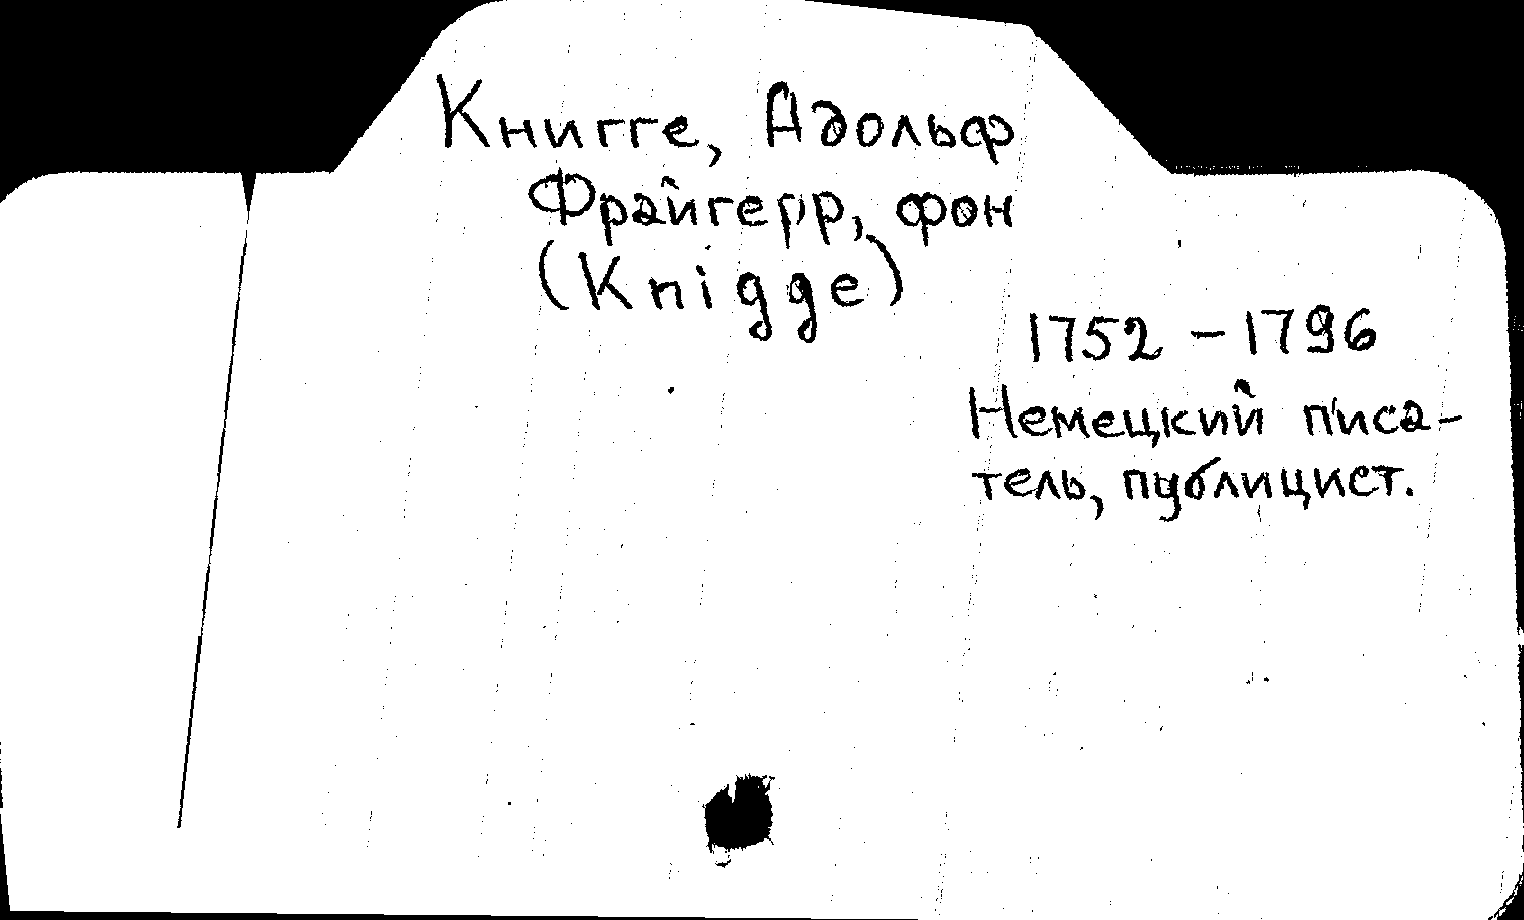 Книгге, Адольф
Фрайгерр, фон
(Knigge)
1752 – 1796
Немецкий писа-
тель, публицист.